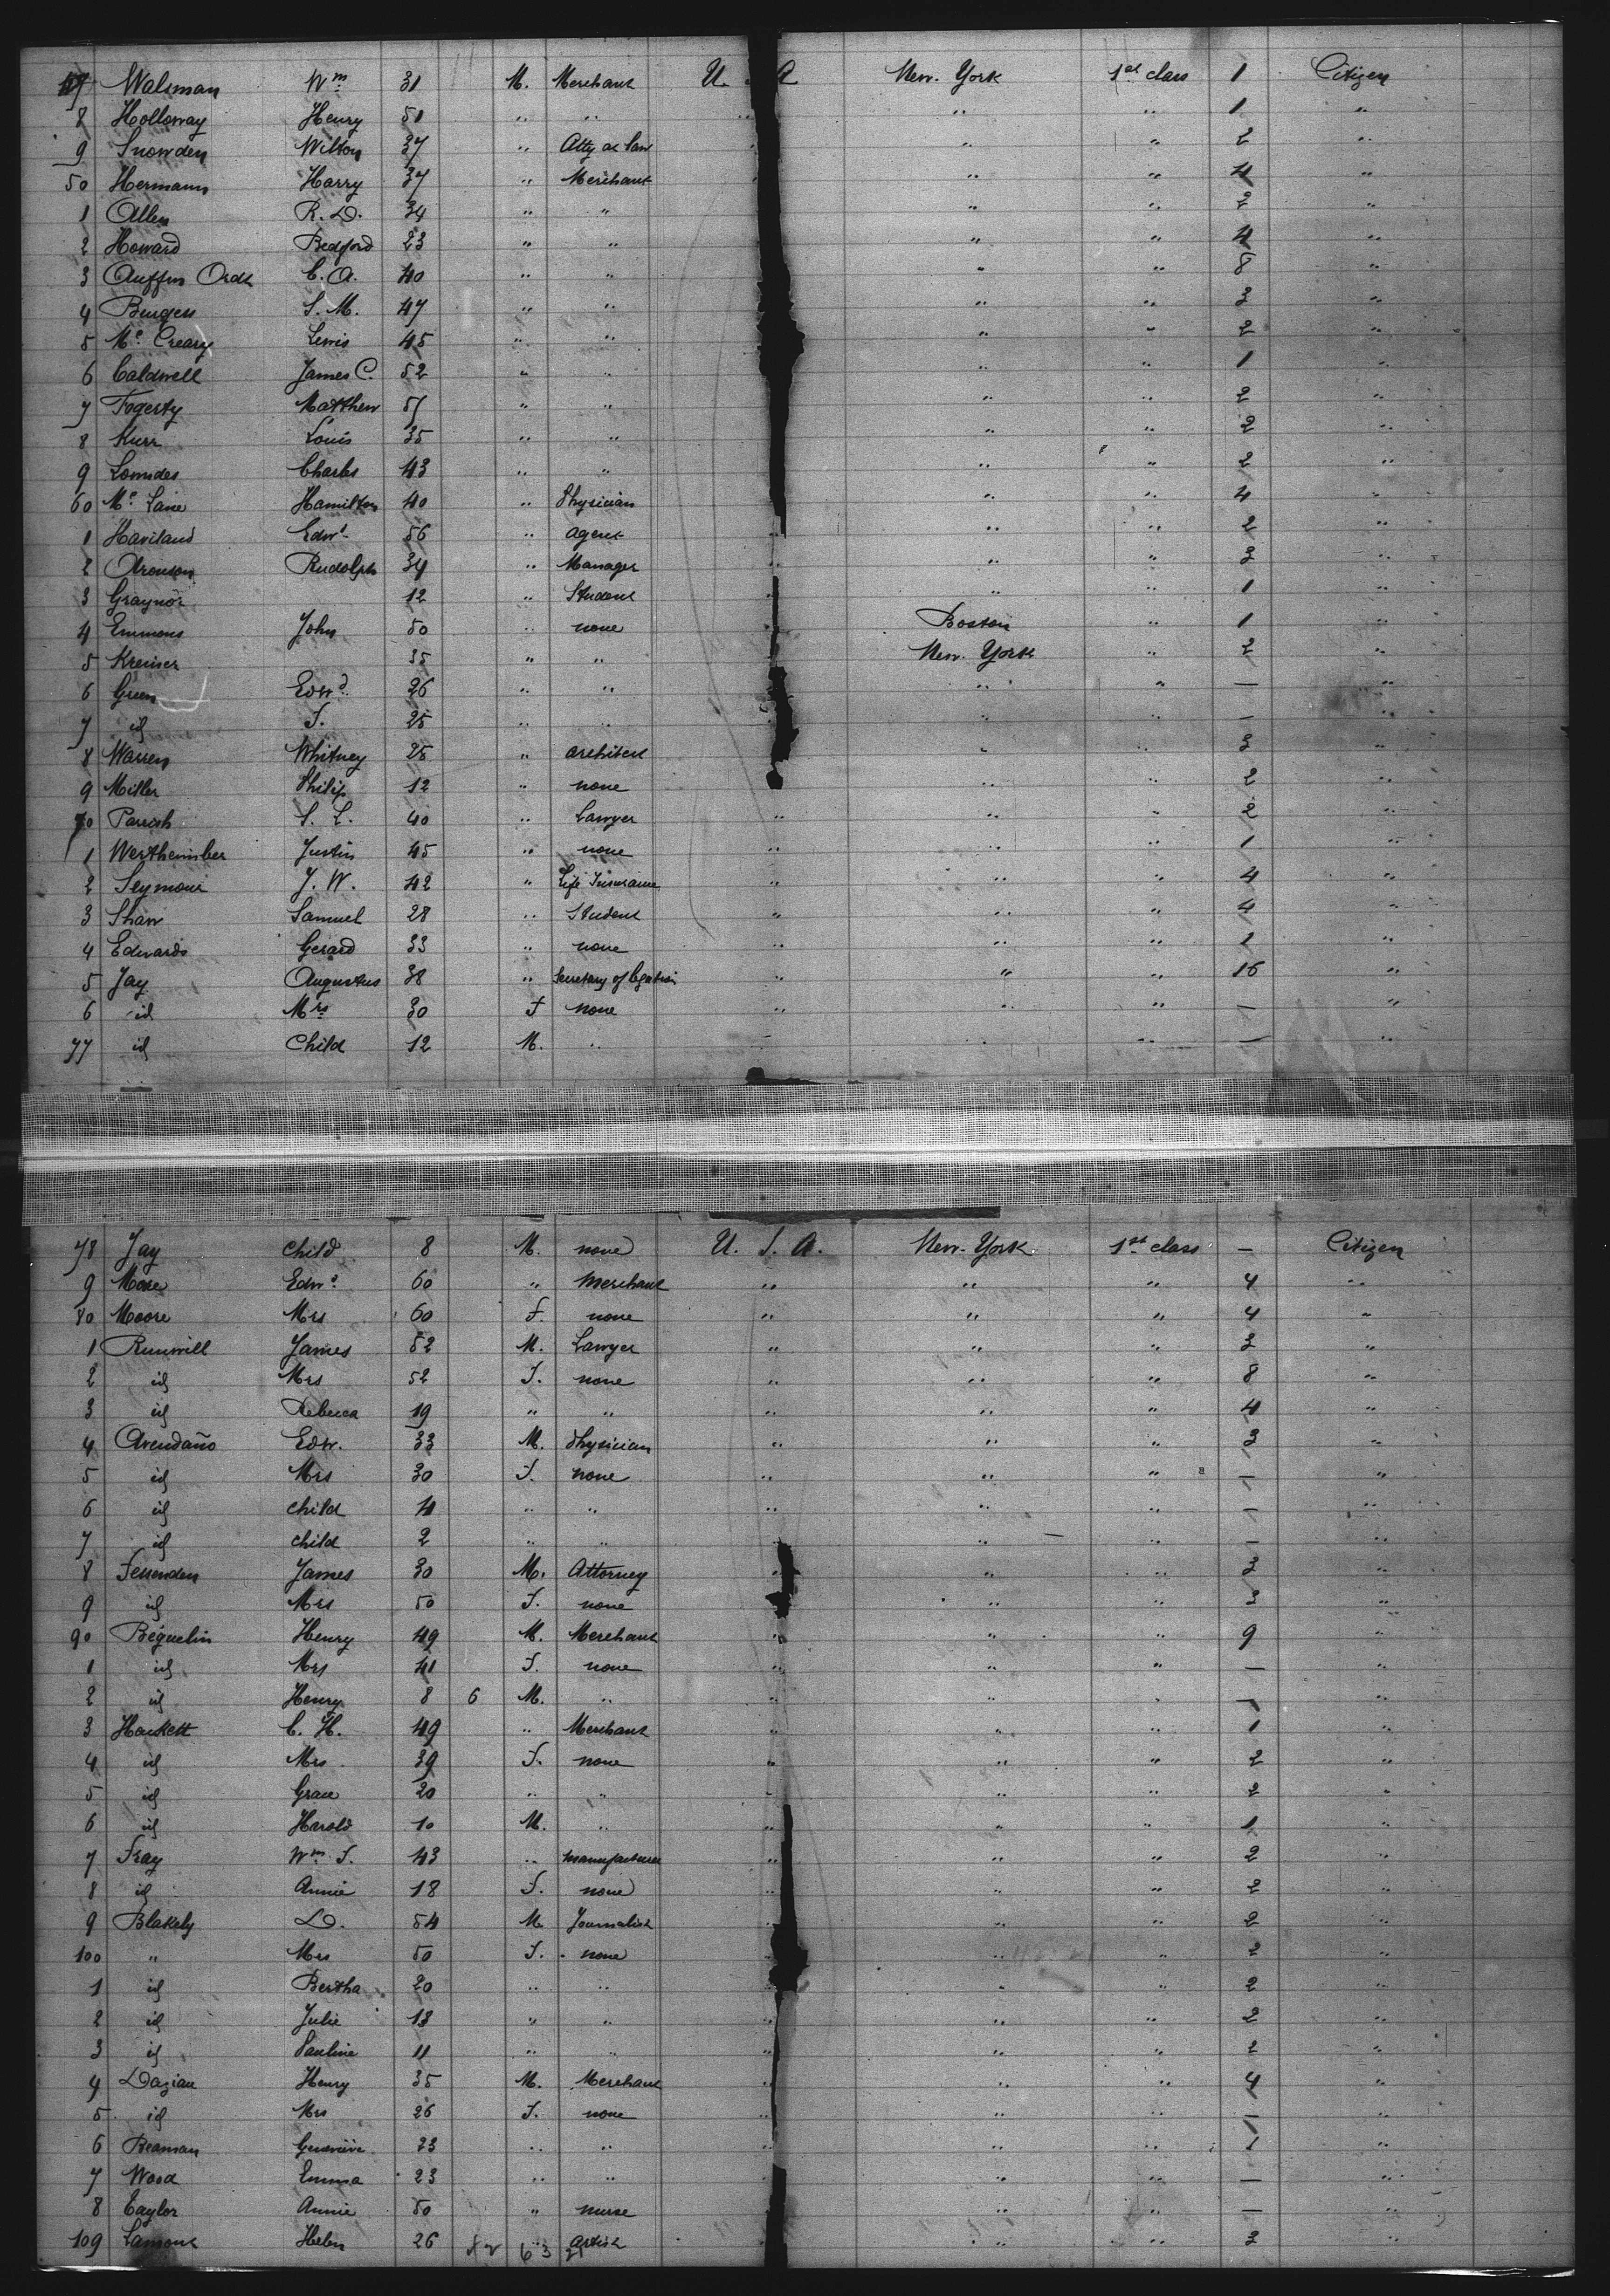 47 Walsman Wm 31 M. Merchant U. A New-York 1st class 1 Citizen
8 Holloway Henry 51 " " " " " 1 "
9 Snowden Wilton 37 " Atty at Law " " " 2 "
50 Hermann Harry 37 " Merchant " " " 4 "
1 Allen R. D. 34 " " " " 2 "
2 Howard Bedford 23 " " " " 4 "
3 Auffm Ordt C. A. 40 " " " " 8 "
4 Burgess S. M. 47 " " " " 3 "
5 Mc Creary Lewis 45 " " " " 2 "
6 Caldwell James C. 52 " " " " 1 "
7 Fogerty Matthew 51 " " " " 2 "
8 Kurr Louis 35 " " " " 2 "
9 Lowndes Charles 43 " " " " 2 "
60 Mc Lane Hamilton 40 " Physician " " 4 "
1 Haviland Edwd 56 " agent " " " 2 "
2 Aronson Rudolph 34 " Manager " " " 3 "
3 Graynor 12 " Student " " " 1 "
4 Emmons John 50 " none " Boston " 1 "
5 Kreiser 35 " " " New-York " 2 "
6 Green Edwd 26 " " " " " — "
7 id T. 25 " " " " " — "
8 Warren Whitney 25 " architect " " 3 "
9 Miller Philip 12 " none " " 2 "
70 Parrish S. L. 40 " Lawyer " " " 2 "
1 Werthemiber Justin 45 " none " " " 1 "
2 Seymour J. W. 42 " Life Insurance " " " 4 "
3 Shaw Samuel 28 " Student " " " 4 "
4 Edwards Gerard 33 " none " " " 1 "
5 Jay Augustus 38 " Secretary of legation " " " 16 "
6 id Mrs 30 F none " " " — "
77 id Child 12 M. " " " " — "
78 Jay child 8 M. none U. S. A. New-York 1st class — Citizen
9 More Edwd 60 " Merchant " " " 4 "
80 Moore Mrs 60 F. none " " " 4 "
1 Runwill James 52 M. Lawyer " " " 3 "
2 id Mrs 52 F. none " " " 8 "
3 id Rebecca 19 " " " " " 4 "
4 Avendaño Edw. 33 M. Physician " " " 3 "
5 id Mrs 30 F. none " " " — "
6 id child 4 " " " " " — "
7 id child 2 " " " " " — "
8 Fessenden James 30 M. Attorney " " " 3 "
9 id Mrs 50 F. none " " " 3 "
90 Béguelin Henry 49 M. Merchant " " " 9 "
1 id Mrs 41 F. none " " " — "
2 id Henry 8 6 M. " " " " — "
3 Hackett C. H. 49 " Merchant " " " 1 "
4 id Mrs 39 F. none " " " 2 "
5 id Grace 20 " " " " " 2 "
6 id Harold 10 M. " " " " 1 "
7 Fray Wm F. 43 " manufacturer " " " 2 "
8 id Annie 18 F. none " " " 2 "
9 Blakely D. 54 M. Journalist " " " 2 "
100 " Mrs 50 F. none " " " 2 "
1 id Bertha 20 " " " " 2 "
2 id Julie 13 " " " " " 2 "
3 id Pauline 11 " " " " " 2 "
4 Dazian Henry 35 M. Merchant " " " 4 "
5 id Mrs 26 F. none " " " — "
6 Beaman Genevieve 23 " " " " " 1 "
7 Wood Emma 23 " " " " " — "
8 Taylor Annie 50 " nurse " " — "
109 Lamont Helen 26 " artist " " " 3 "
63 21